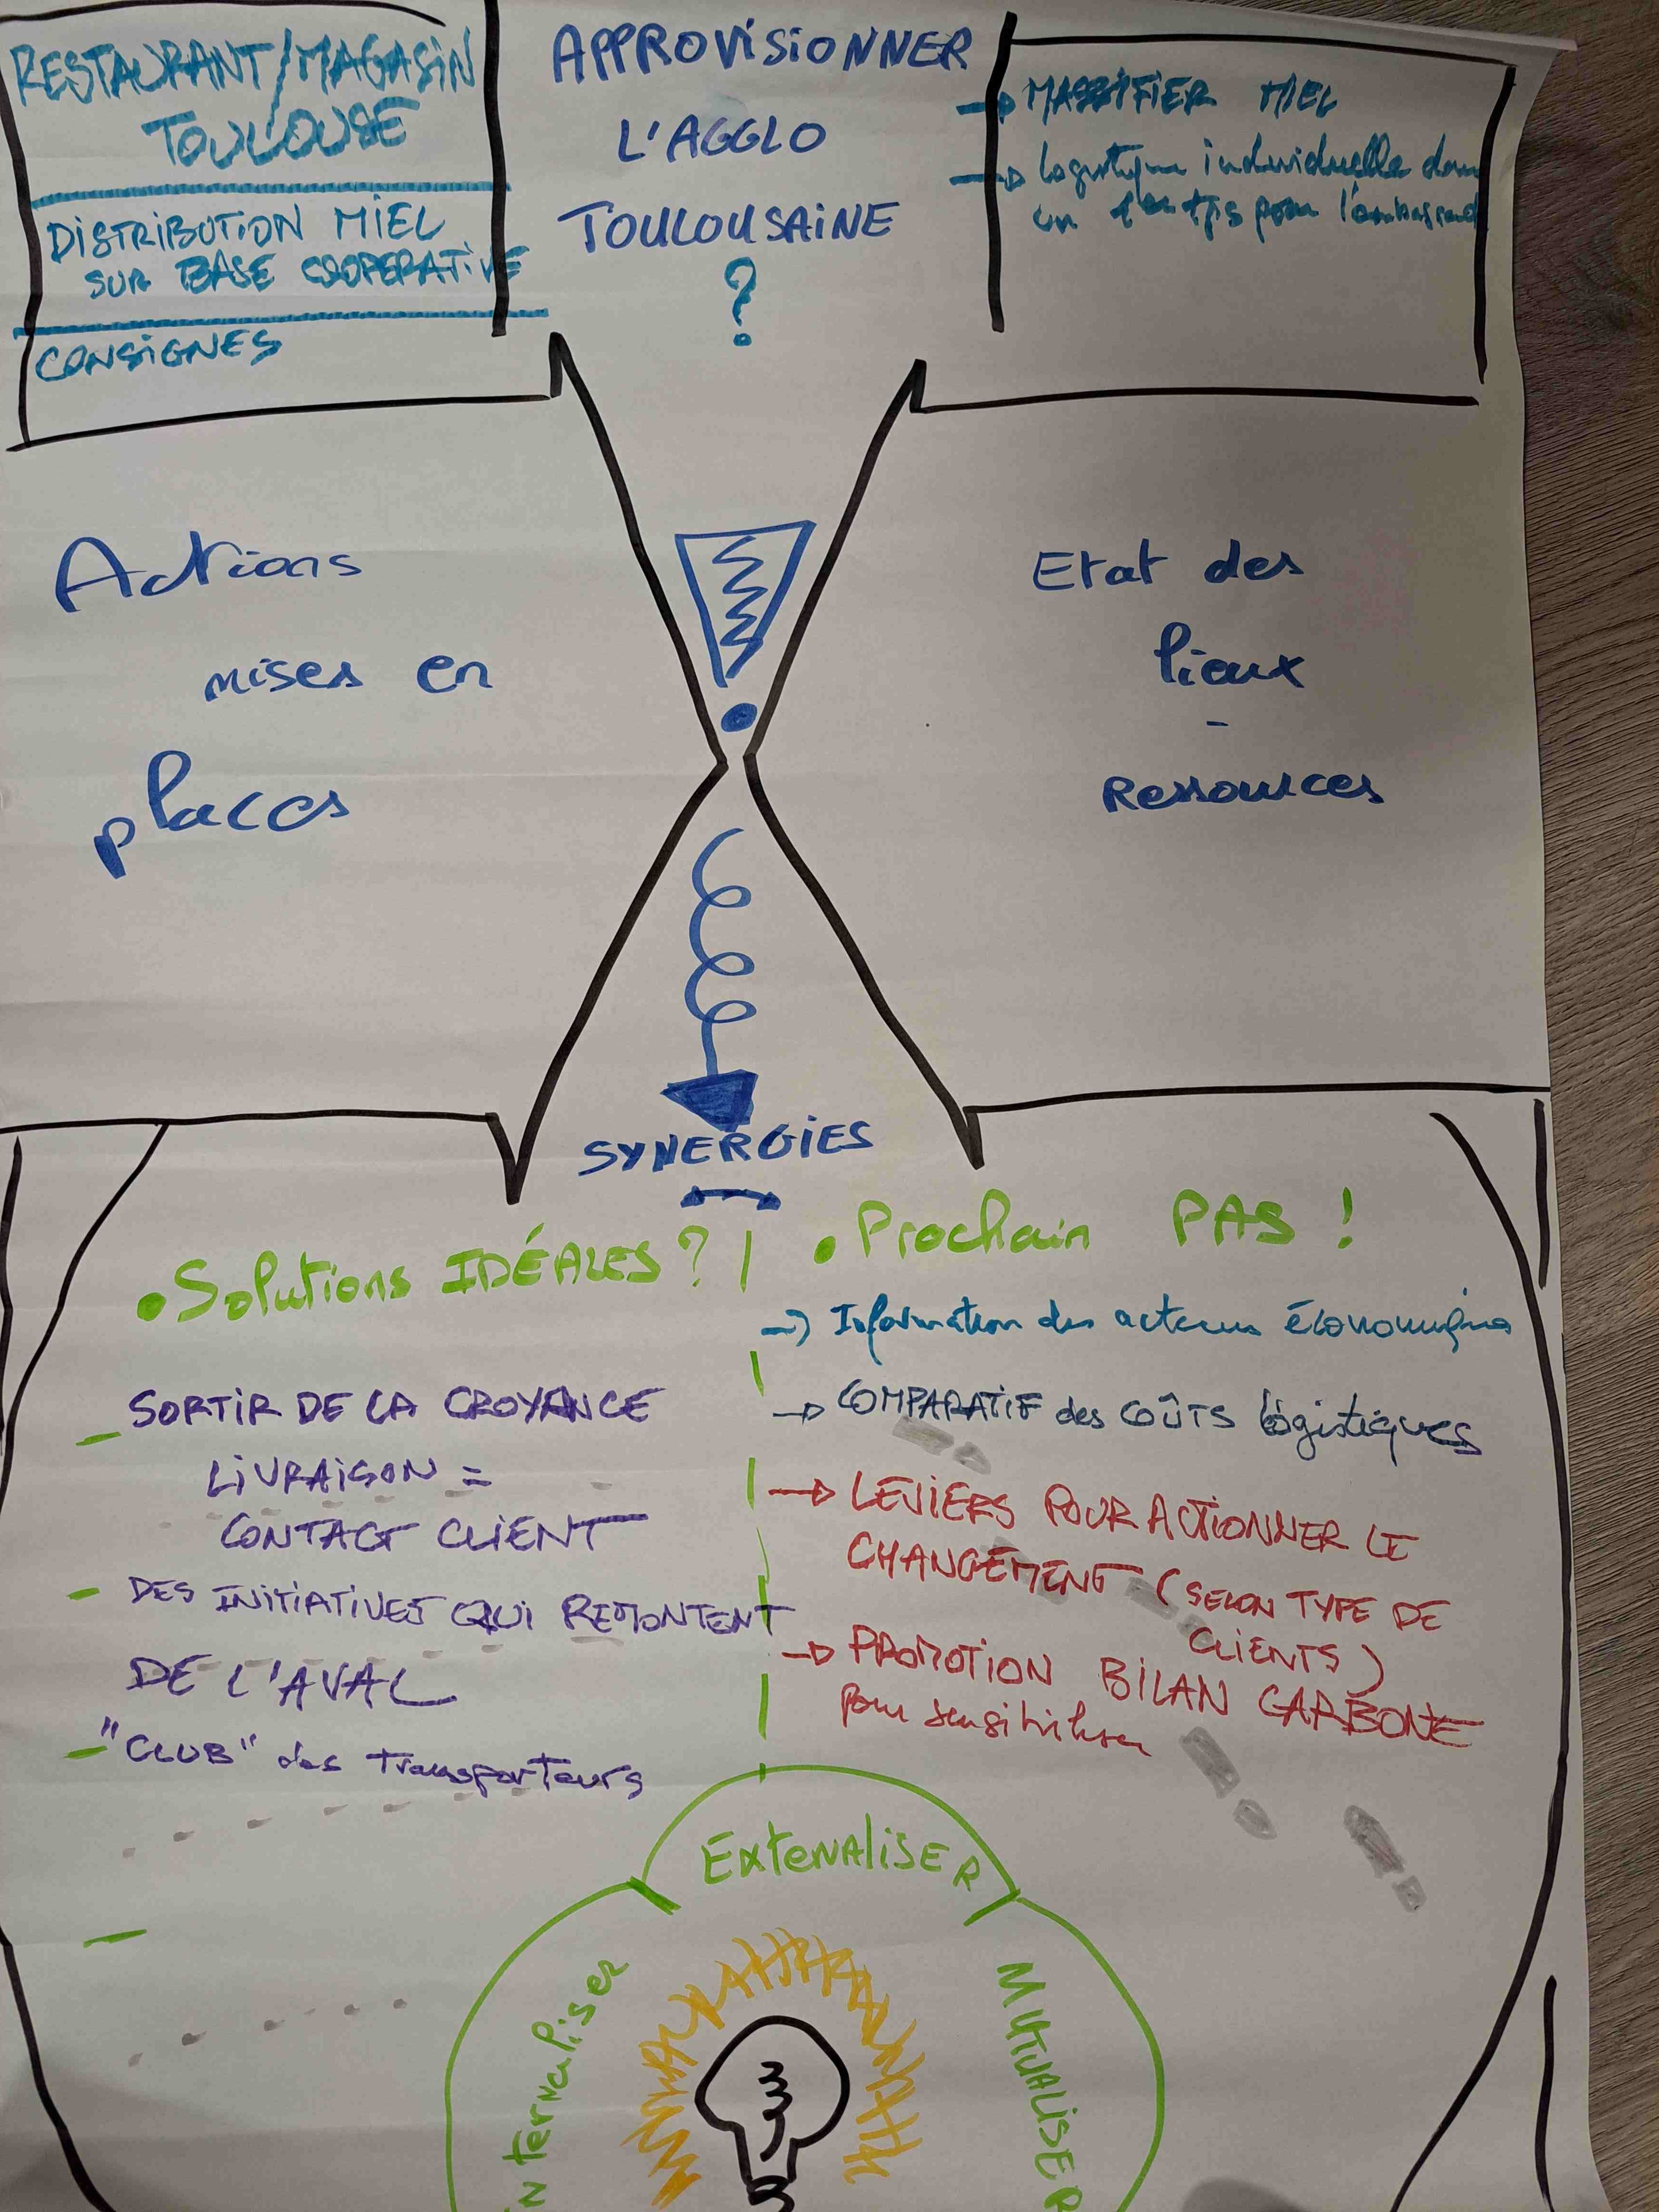 RESTAURANT/MAGASIN
TOULOUSE
DISTRIBUTION MIEL
SUR BASE COOPERATIVE
CONSIGNES
APPROVISIONNER
L'AGGLO
TOULOUSAINE
?
→ MASSIFIER MIEL
→ Logistique individuelle dans
un pour
Actions
mises en
places
Etat des
lieux
-
Ressources
SYNERGIES
• Solutions IDÉALES ? |
- SORTIR DE LA CROYANCE
LIVRAISON =
CONTACT CLIENT
- DES INITIATIVES QUI REMONTENT
DE L'AVAL
- "CLUB" des Transporteurs
-
• Prochain PAS !
→ Information des acteurs économiques
→ COMPARATIF des COÛTS logistiques
→ LEVIERS POUR ACTIONNER LE
CHANGEMENT (SELON TYPE DE
CLIENTS)
→ PROMOTION BILAN CARBONE
pour sensibiliser
ExtenaliSER
INternaliser
MUTUALISER